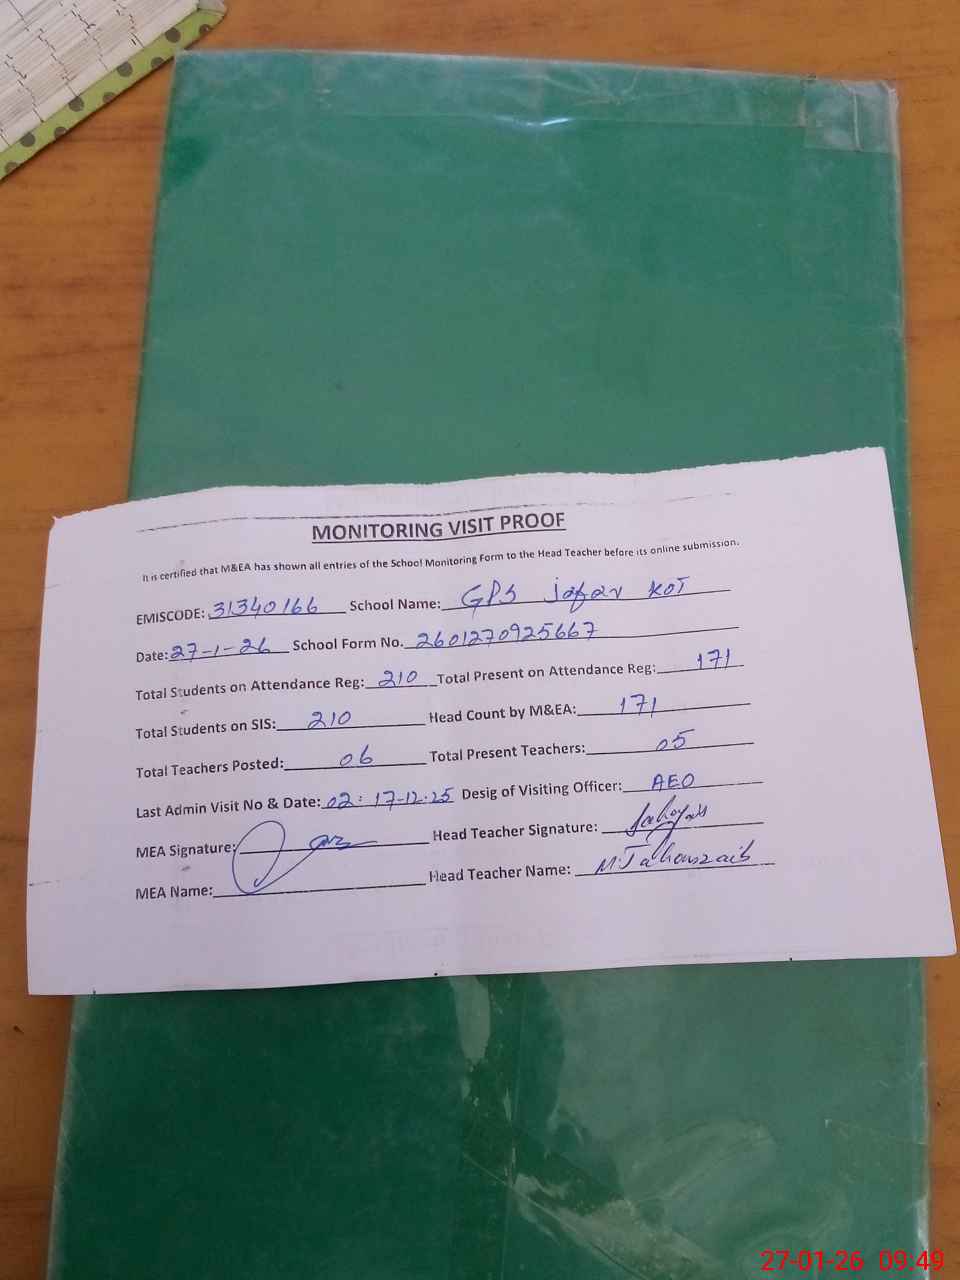 MONITORING VISIT PROOF
It is certified that M&EA has shown all entries of the School Monitoring Form to the Head Teacher before its online submission.
EMISCODE: 31340166 School Name: GPS Jafar KOT
Date: 27-1-26 School Form No. 2601270925667
Total Students on Attendance Reg: 210 Total Present on Attendance Reg: 171
Total Students on SIS: 210 Head Count by M&EA: 171
Total Teachers Posted: 06 Total Present Teachers: 05
Last Admin Visit No & Date: 02: 17-12-25 Desig of Visiting Officer: AEO
MEA Signature: Head Teacher Signature:
MEA Name: Head Teacher Name: M Jahanzaib
27-01-26 09:49